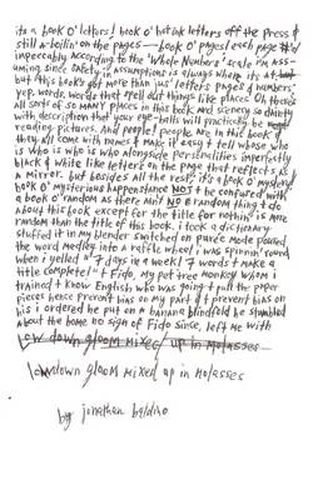 its a book o' letters! book o' hot ink letters off the press &
still a-boilin' on the pages — book o' pages! each page #'d
impeccably according to the 'Whole Numbers' scale i'm ass-
uming since safety in assumptions is always where its at.
but 'this book's got more than jus' letters pages & numbers:
yep. words. words that spell out things like places Oh theres
all sorts of so MANY places in this book and scenery so dainty
with description that your eye-balls will practically be
reading pictures. And people! people are in this book &
they all come with names & make it easy t tell whose who
is who is who is who alongside personalities imperfectly
black & white like letters on the page that reflects as
a mirror. but besides all the rest, it's a book o' mystery
book o' mysterious happenstance NOT t be confused with
a book o' random as there ain't NO Random thing t do
about this book except for the title for nothin' is more
random than the title of this book. i took a dictionary
stuffed it in my blender switched on purée mode poured
the word medley into a raffle wheel i was spinnin' round
when i yelled n' 7 days in a week! 7 words t make a
title complete! t Fido, my pet tree monkey whom i
trained t know English who was going t pull the paper
pieces hence prevent bias on my part & t prevent bias on
his i ordered he put on a banana blindfold he stumbled
about the home no sign of Fido since, left me with
Low down gloom mixed up in molasses
lowdown gloom mixed up in molasses
by jonathan baldino